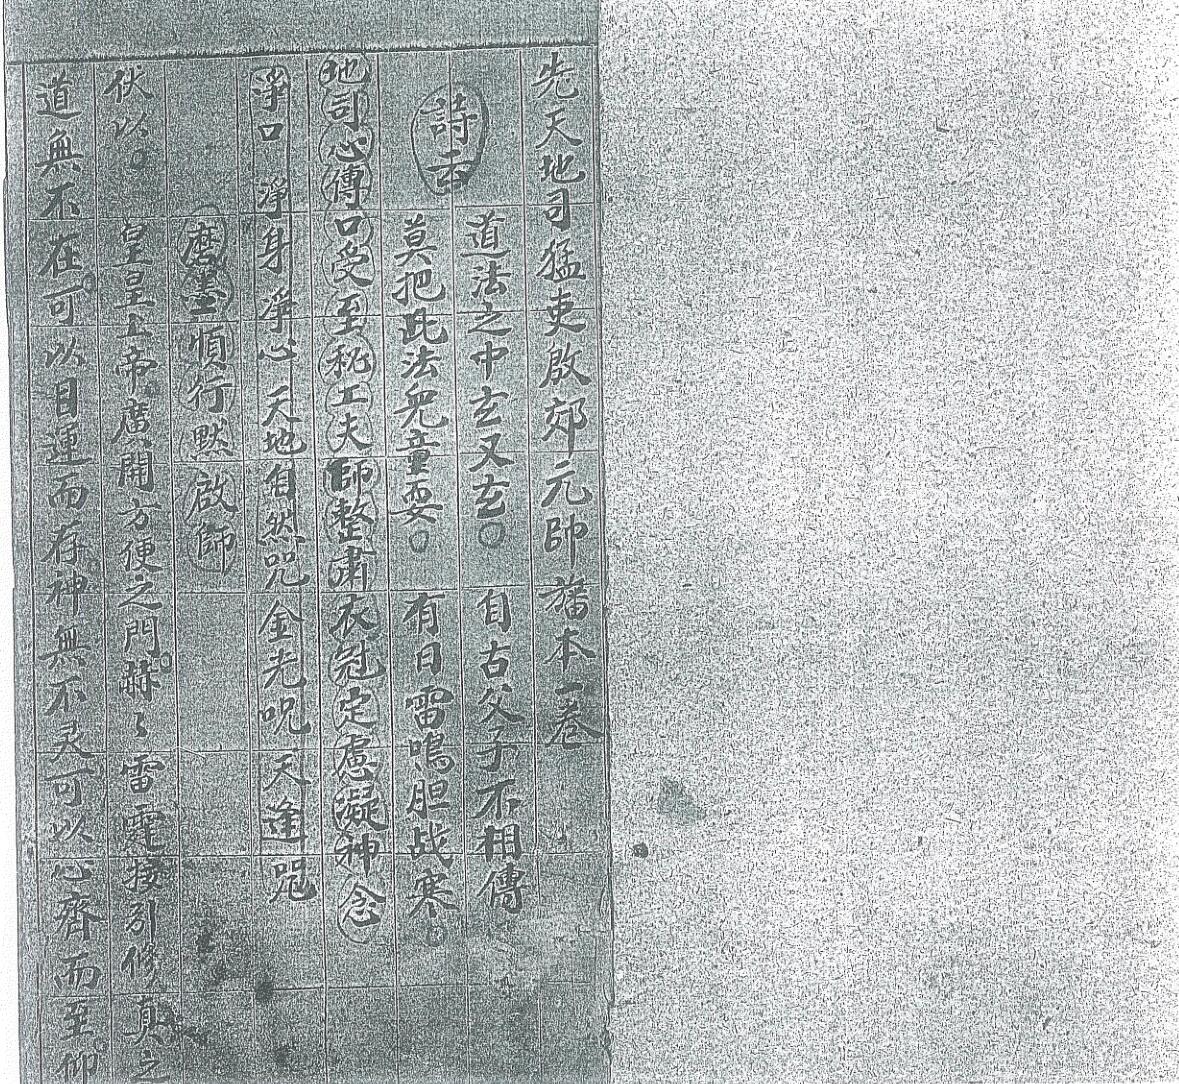 先天地司猛吏啟郊元帥旛本一卷
詩云
道法之中玄又玄○自古父子不相傳
莫把此法兒童耍○有日雷鳴胆战寒。
地司心傳口受至秘工夫師整肅衣冠定慮凝神念
淨口淨身淨心天地自然咒金光咒天蓬咒
磨墨順行默啟師
伏以。皇皇上帝。廣開方便之門。赫々雷霆接引修真之
道無不在。可以目運而存。神無不灵可以心齊而至。仰